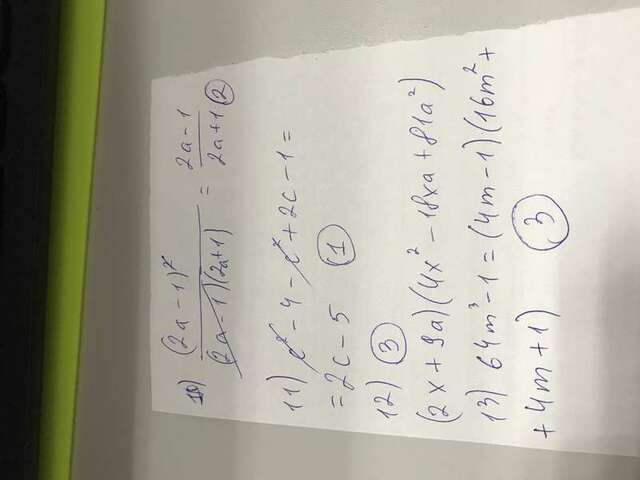 10) (2a-1)²/(2a-1)(2a+1) = 2a-1/2a+1 2
11) c²-4-c²+2c-1=
=2c-5 1
12) 3
(2x+9a)(4x²-18xa+81a²)
13) 64m³-1=(4m-1)(16m²+
+4m+1) 3